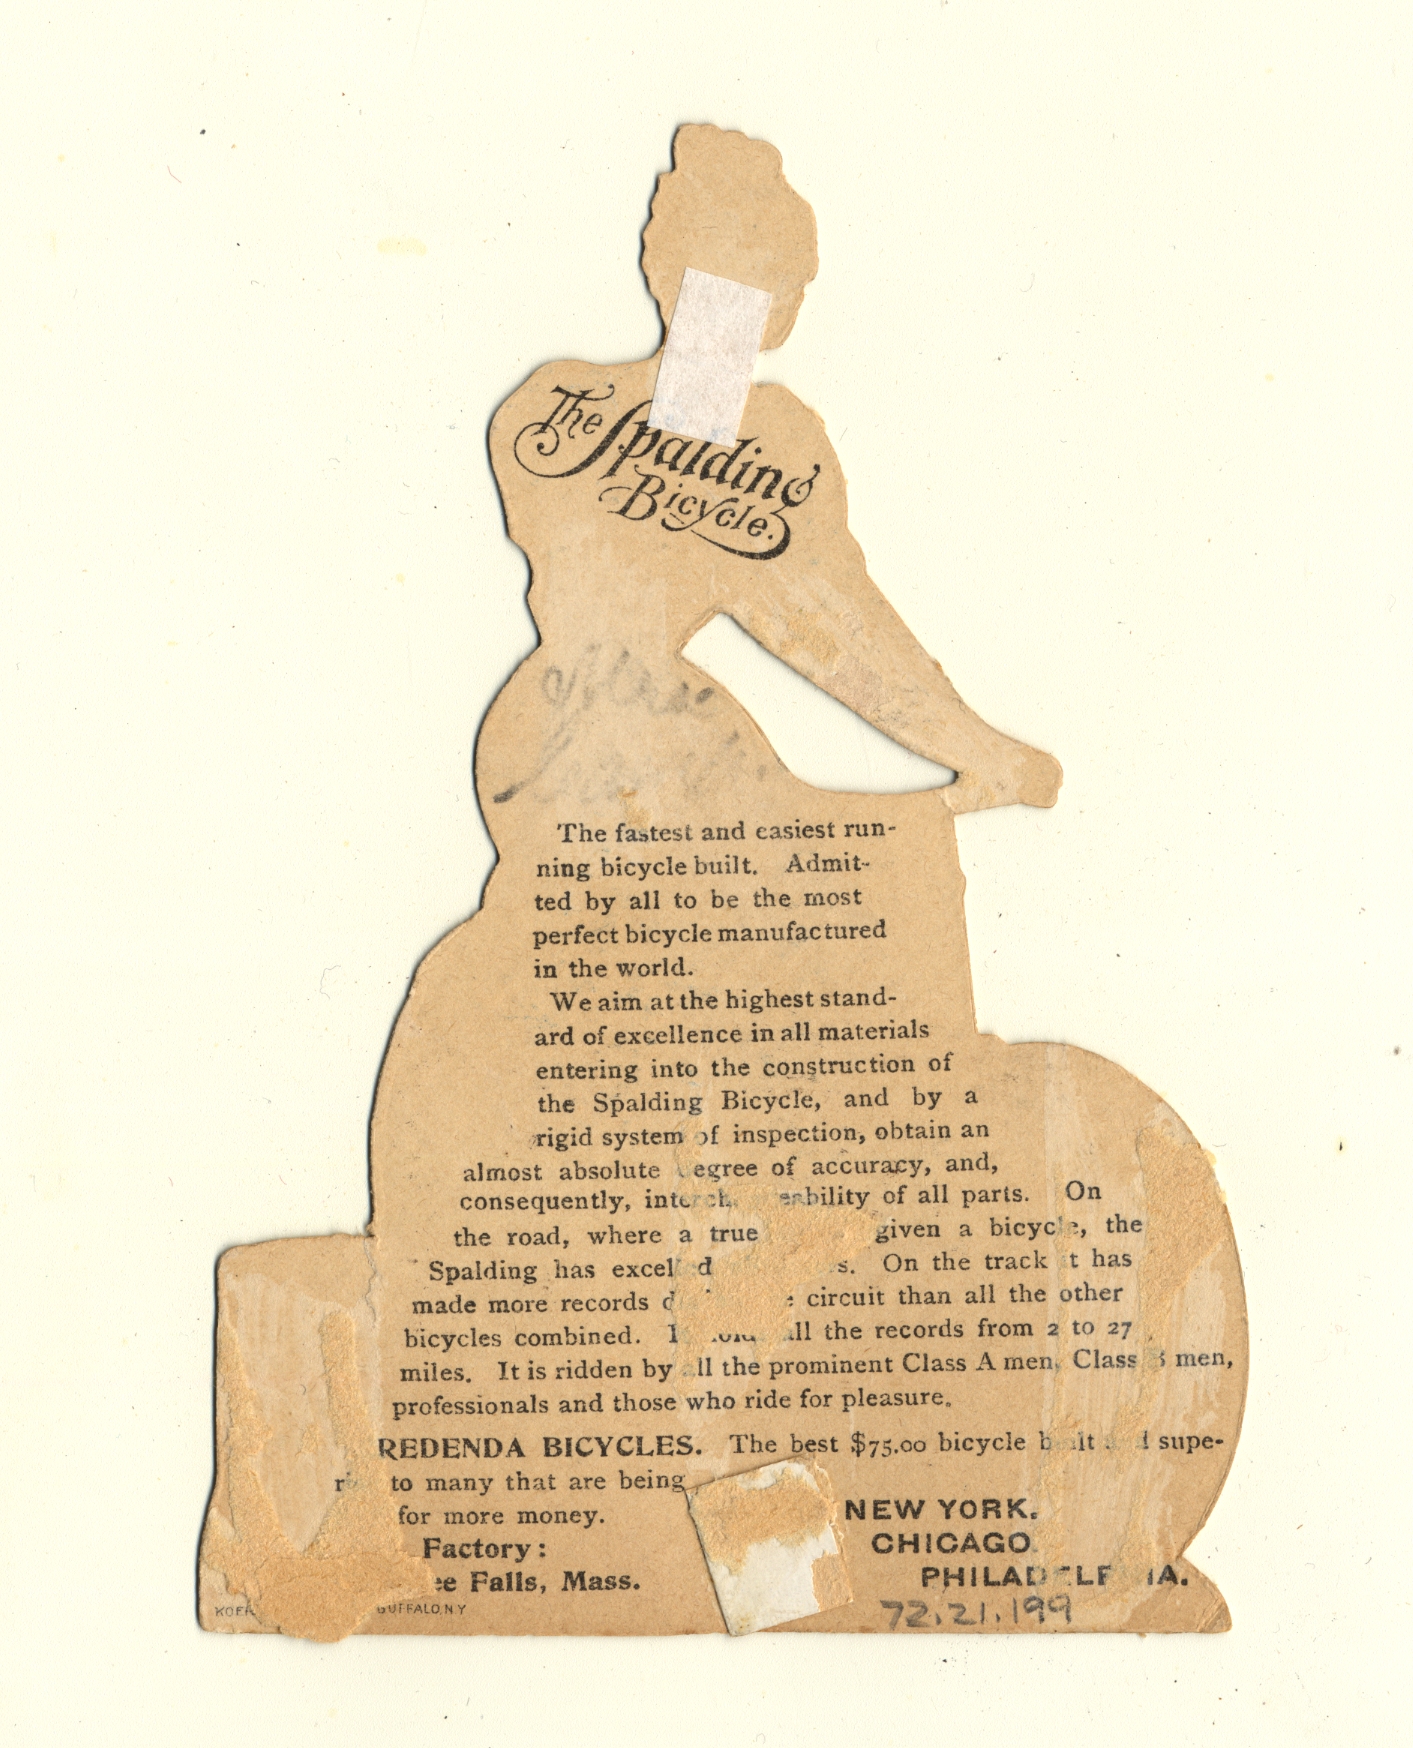 The Spalding
Bicycle.
The fastest and easiest run-
ning bicycle built. Admit-
ted by all to be the most
perfect bicycle manufactured
in the world.
We aim at the highest stand-
ard of excellence in all materials
entering into the construction of
the Spalding Bicycle, and by a
rigid system of inspection, obtain an
almost absolute degree of accuracy, and,
consequently, of all parts. On
the road, where a true given a bicycle, the
Spalding has excelled On the track it has
made more records circuit than all the other
bicycles combined. all the records from 2 to 27
miles. It is ridden by all the prominent Class A men, Class B men,
professionals and those who ride for pleasure.
REDENDA BICYCLES. The best $75.00 bicycle built and supe-
to many that are being
for more money.
Factory:
Falls, Mass.
NEW YORK.
CHICAGO.
PHILADELPHIA.
BUFFALO, N.Y
72.21.199